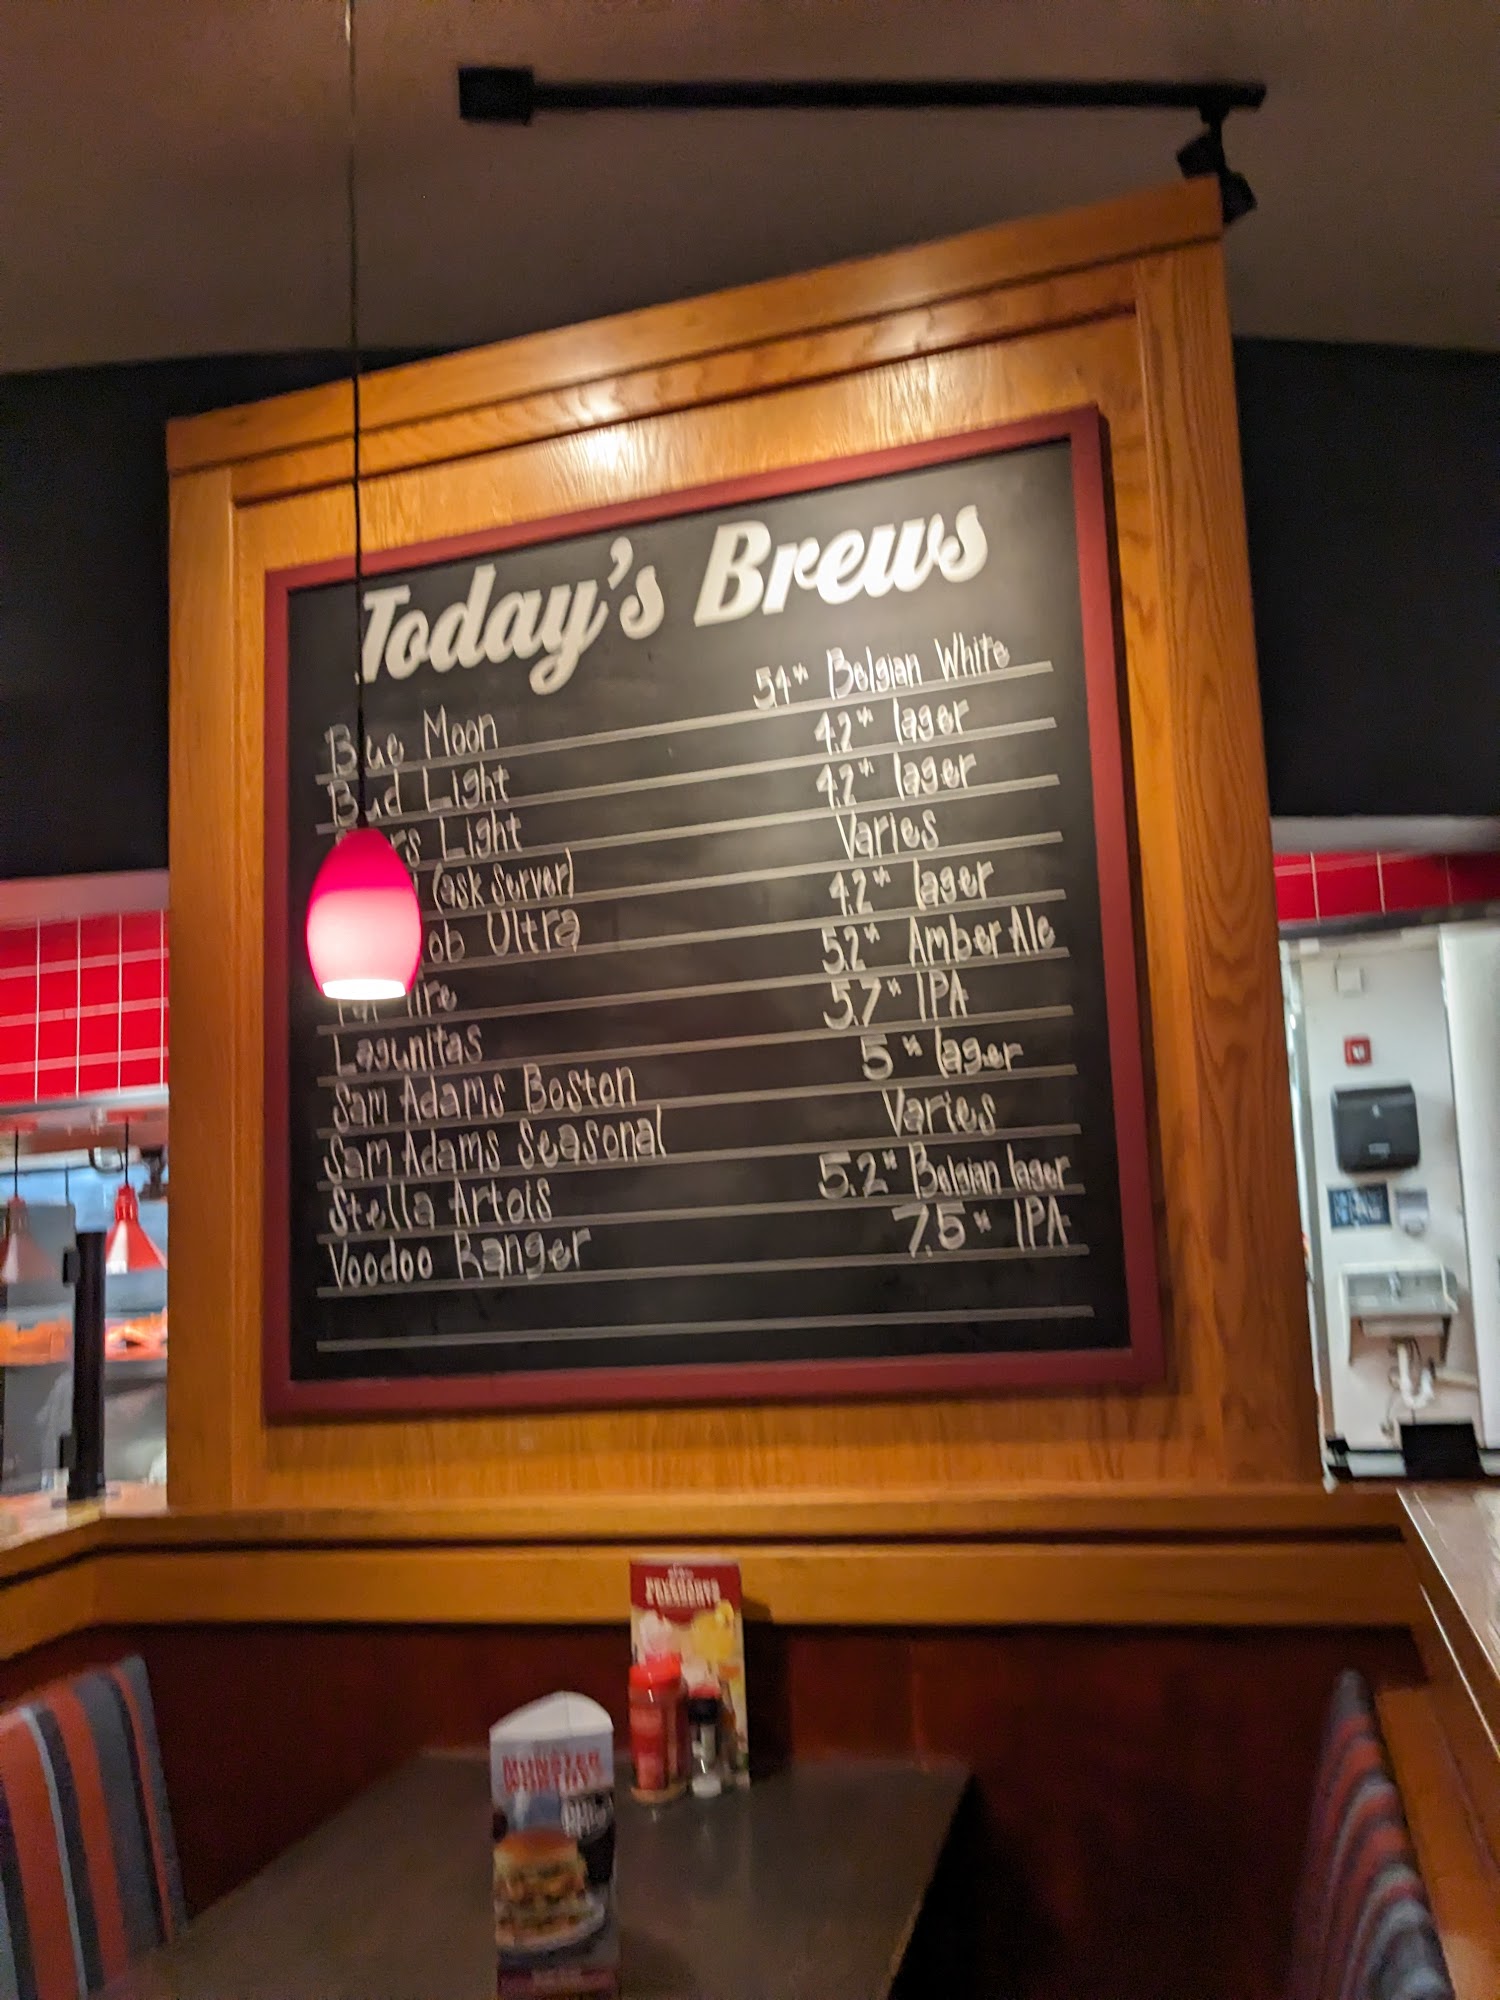 Today's Brews
Blue Moon 5.4% Belgian White
Bud Light 4.2% lager
Light 4.2% lager
(ask server) Varies
Ultra 4.2% lager
Tire 5.2% Amber Ale
Lagunitas 5.7% IPA
Sam Adams Boston 5% lager
Sam Adams Seasonal Varies
Stella Artois 5.2% Belgian lager
Voodoo Ranger 7.5% IPA
MONSTER